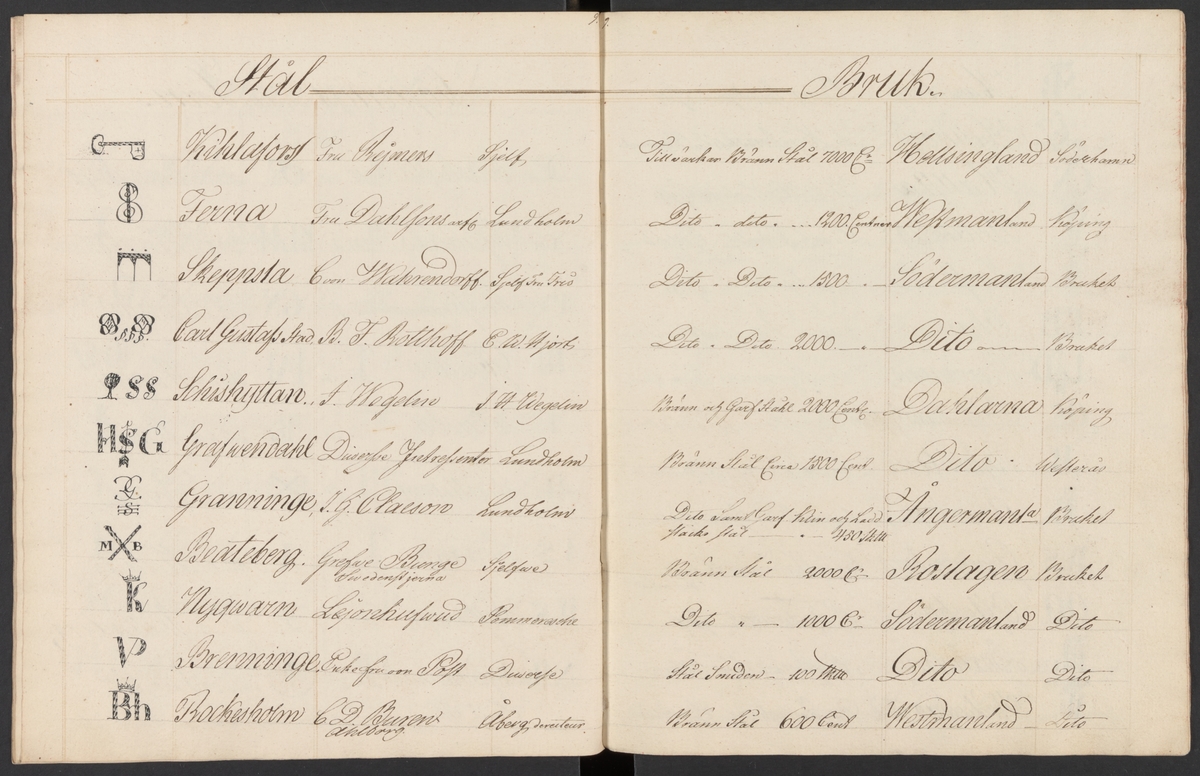 Stål Bruk.
Kihlafors Fru Rejmers Sjelf Tillverkar Bränn Stål 7000 Cr Helsingland Söderhamn
Ferna Fru Dahlsons arfv Lundholm Dito - dito - 1200 Centner Westmanland Köping
Skeppsta C von Wahrendorff Sjelf Dito - Dito - 1300 Södermanland Bruket
Carl Gustafs Stad B. T. Rollhoff E. W. Hjort Dito - Dito 2000 Dito Bruket
SS Schishyttan J. Wegelin J. H. Wegelin Bränn och Garf Stahl 2000 Cent. Dahlarna Köping
HSG Grafwendahl Diverse Intressenter Lundholm Bränn Stål Circa 1300 Cent. Dito Westerås
Granninge J. G. Claeson Lundholm Dito Samt Garf och Ångermanla Bruket
Stål 450
M B Beateberg. Grefwe Bunge Sjelfwe Bränn Stål 2000 Cr Roslagen Bruket
Swedenstjerna
K Nyqwarn Lejonhufwud Pommeresche Dito " 1000 Cr Södermanland Dito
VP Brenninge Enke fru von Post Diverse Stål Smiden 100 Dito Dito
Bh Rockesholm C D. Buren Åberg directeur Bränn Stål 600 Cent Westmanland Dito
Ahlborg